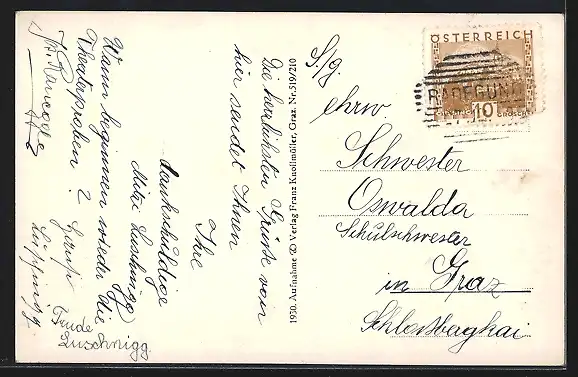 Die herzlichsten Grüße vom
hier sendet Ihnen
Ihre
dankschuldige
Mitzi Luschnigg
Wann beginnen wieder die
Theaterproben?
Trude
Luschnigg
1930. Aufnahme Verlag Franz Knollmüller, Graz. Nr. 519/210
ÖSTERREICH
RADEGUND
10
GROSCHEN
S./g.
ehrw.
Schwester
Oswalda
Schulschwester
in Graz